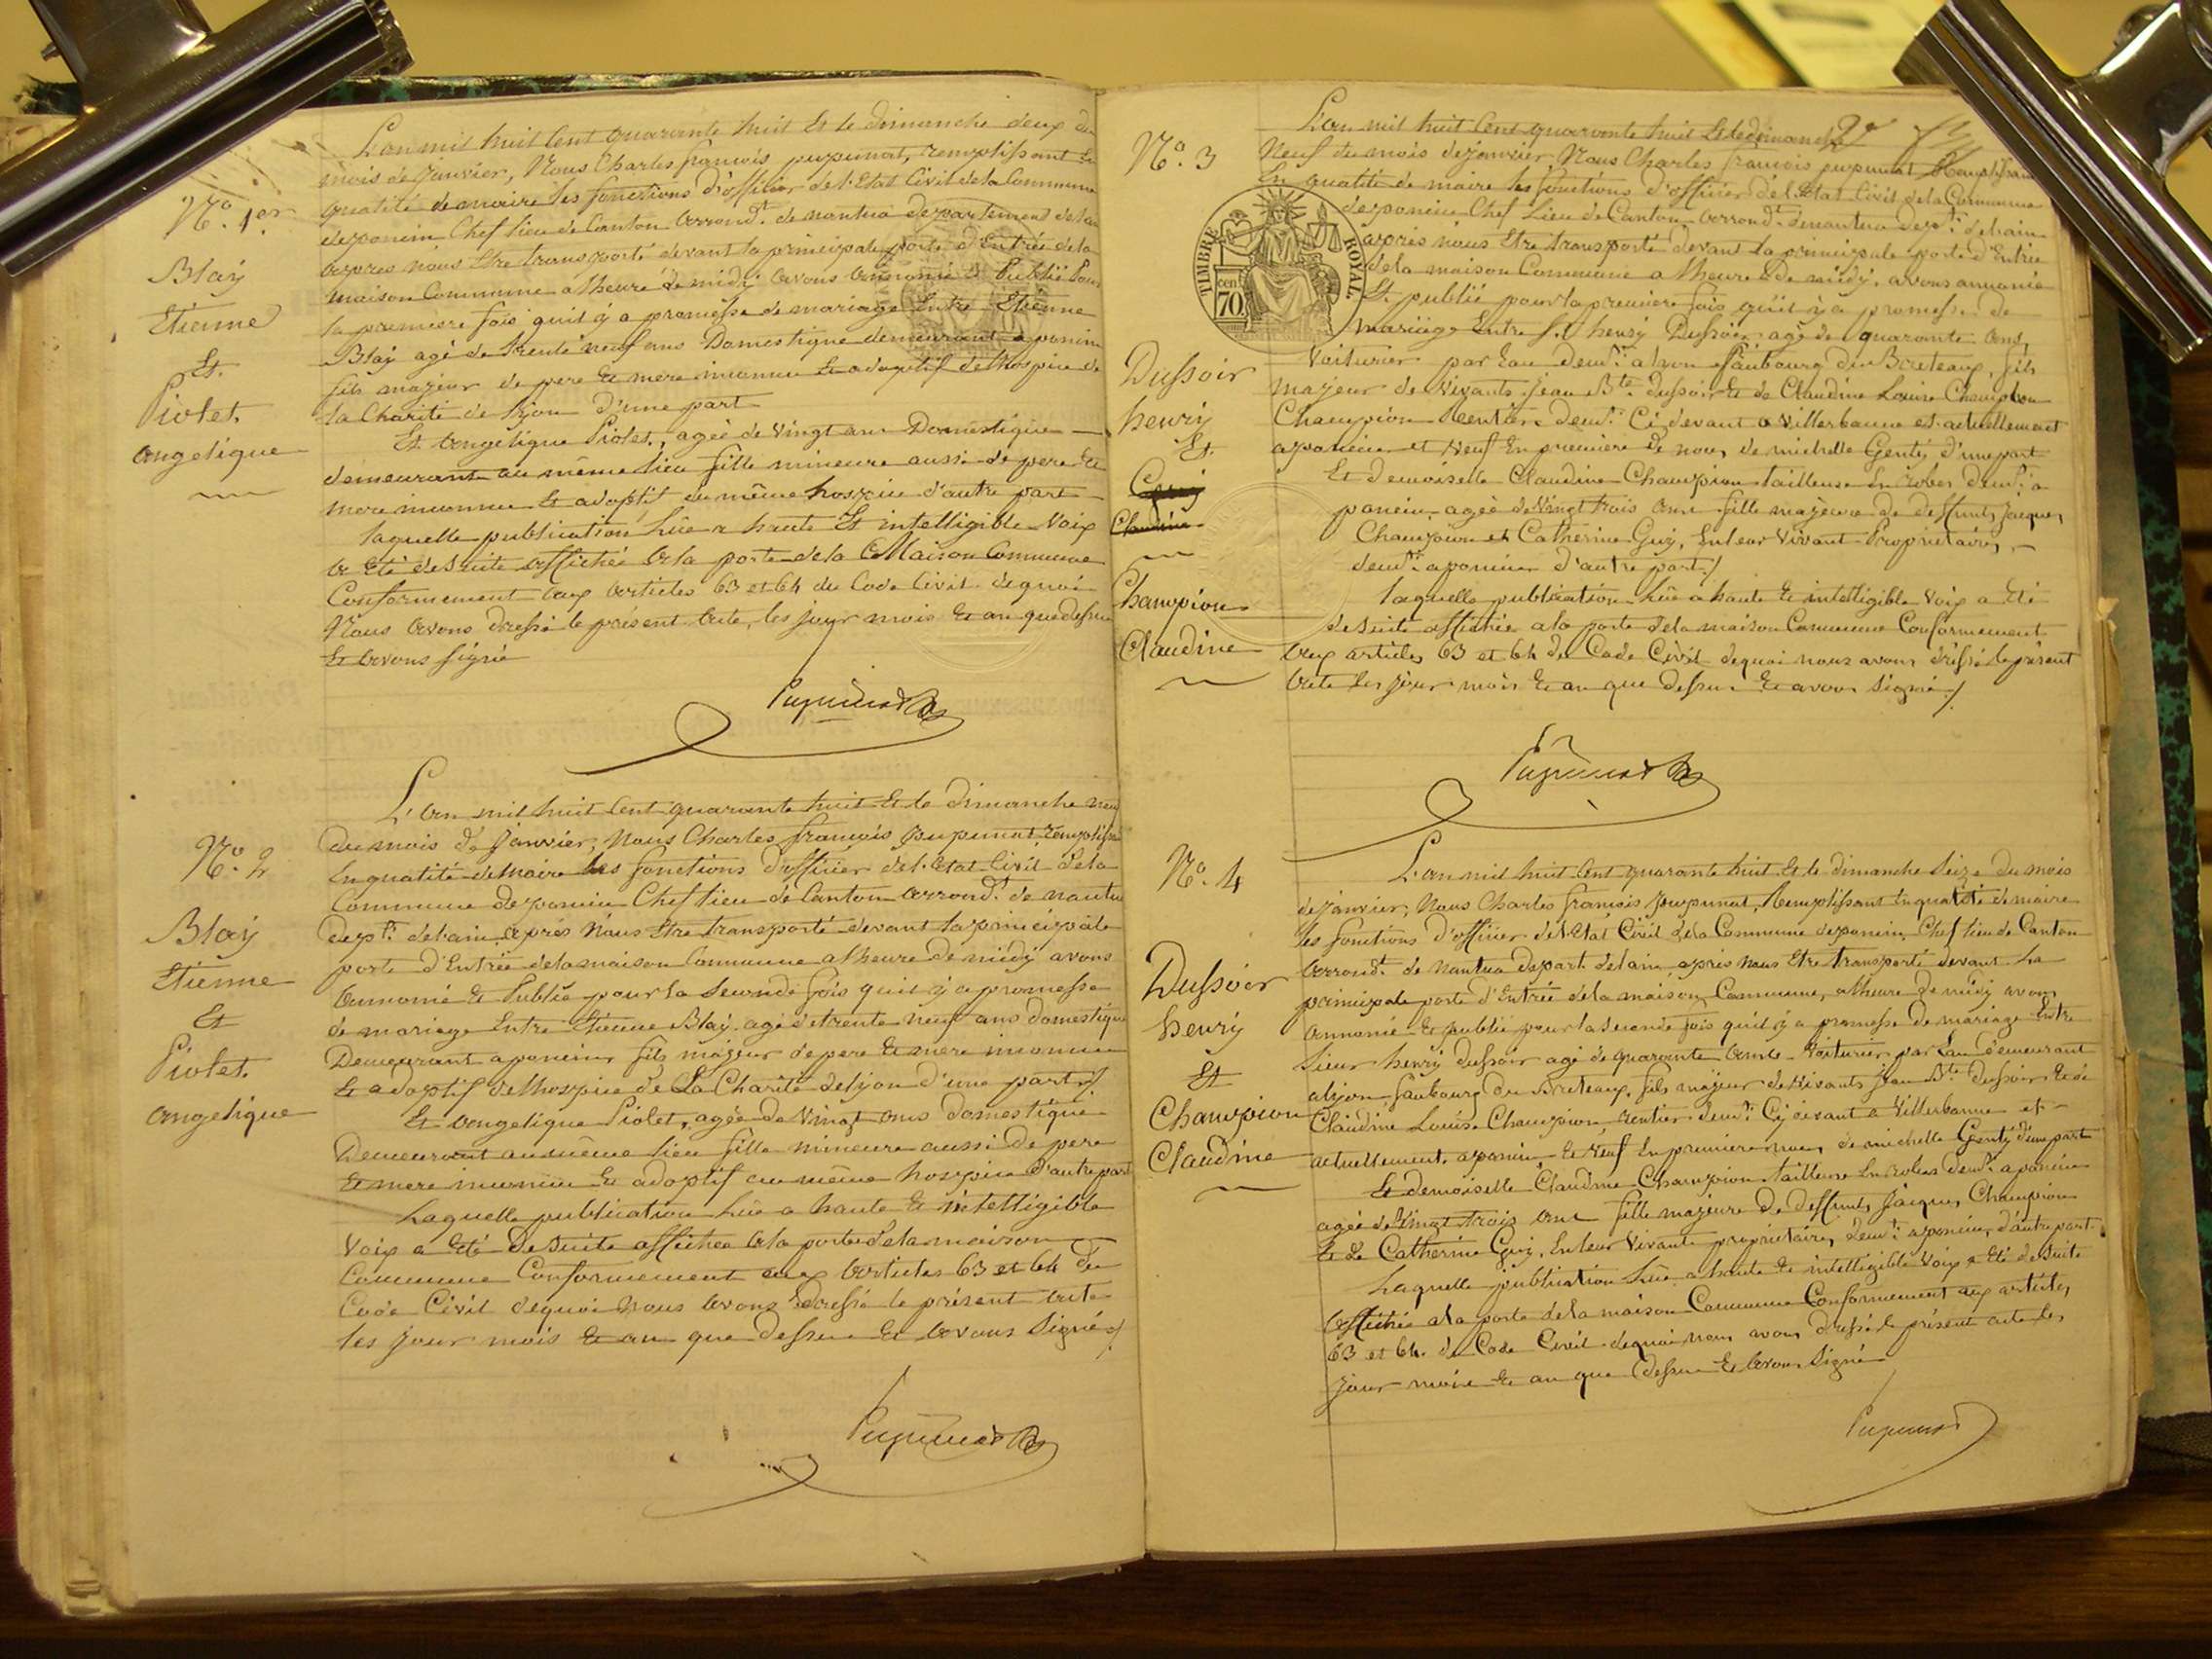 N.o 1.er
Blaÿ
Etienne
Et
Piolet.
angelique
L'an mil huit Cent quarante huit Et le dimanche deux du
mois de Janvier, Nous Charles françois pupunat, remplissant En
qualité de maire les fonctions d'officier de l'Etat Civil de la Commune
deponcin Chef lieu de Canton arrond.t de nantua departement de l'ain
apres nous Etre transporté devant la principale porte d'Entrée de la
maison Commune a lheure de midÿ avons annoncé Et Publié Pour
la premiere fois quil ÿ a promesse de mariage Entre Etienne
Blaÿ agé de trente neuf ans Domestique demeurant a poncin
fils majeur de pere Et mere inconnu Et adoptif delhospice de
la Charité de lyon d'une part
Et angelique Piolet, agée de vingt ans Domestique
demeurante au même lieu fille mineure aussi de pere Et
mere inconnu Et adoptif du même hospice d'autre part
laquelle publication lüe a haute Et intelligible Voix
a Eté de suite affichée a la porte de la Maison Commune
Conformement aux articles 63 et 64 du Code Civil dequoi
Nous avons dressé le présent acte, les jour mois Et an que dessus
Et avons signé
Pupunat
N.o 2
Blaÿ
Etienne
Et
Piolet.
angelique
L'an mil huit Cent quarante huit Et le dimanche neuf
du mois de Janvier, Nous Charles françois pupunat, remplissant
En qualité de Maire les fonctions d'officier de l'Etat Civil de la
Commune deponcin Chef lieu de Canton arrond.t de nantua
dep.t del'ain, après Nous Etre transporté devant la principale
porte d'Entrée dela maison Commune a lheure de midÿ avons
annoncé Et Publié pour la Seconde fois quil ÿ a promesse
de mariage Entre Etienne Blaÿ agé de trente neuf ans domestique
Demeurant a poncin, fils majeur de pere Et mere inconnu
Et adoptif delhospice de La Charité de lyon d'une part /
Et angelique Piolet, agée de Vingt ans domestique
Demeurant au même lieu fille mineure aussi de pere
Et mere inconnu Et adoptif du même hospice d'autre part
Laquelle publication lüe a haute Et intelligible
Voix a Eté de suite affichée a la porte de la maison
Commune Conformement aux articles 63 et 64 du
Code Civil dequoi Nous avons dressé le présent acte
les jour mois Et an que dessus Et avons Signé /
Pupunat
2e
N.o 3
TIMBRE ROYAL
70 cent
Dussoir
henrÿ
Et
Guÿ
Claudine
Champion
Claudine
L'an mil huit Cent quarante huit Et le dimanche
Neuf du mois de janvier Nous Charles françois pupunat Remplissant
En qualité de maire les fonctions d'officier de l'Etat Civil de la Commune
deponcin Chef Lieu de Canton arrond.t de nantua dep.t de lain
après nous Etre transporté devant la principale porte d'Entrée
dela maison Commune a lheure de midÿ, avons annoncé
Et publié pour la premiere fois quil ÿ a promesse de
mariage Entre S.r henrÿ Dussoir agé de quarante ans,
Voiturier par Eau dem.t a lyon faubourg du Breteaux, fils
majeur de Vivants jean B.te Dussoir Et de Claudine Louise Champion
Champion rentier dem.t Ci devant a Villerbanne et actuellement
a poncin et Veuf En premiere de noces de michelle Gentÿ d'une part
Et demoiselle Claudine Champion tailleuse En robes dem.t a
poncin, agée de Vingt trois ans fille majeure de deffunts Jacques
Champion et Catherine Guÿ, En leur Vivant Propriétaires,
dem.t a poncin d'autre part /
Laquelle publication lüe a haute Et intelligible Voix a Eté
de suite affichée a la porte dela maison Commune Conformement
aux articles 63 et 64 du Code Civil dequoi nous avons dressé le présent
acte les jour mois Et an que dessus Et avons signé /
Pupunat
N.o 4
Dussoir
henrÿ
Et
Champion
Claudine
L'an mil huit Cent quarante huit Et le dimanche Seize du mois
de janvier, Nous Charles françois pupunat, Remplissant En qualité de maire
les fonctions d'officier de l'Etat Civil dela Commune deponcin Chef lieu de Canton
arrond.t de Nantua depart. de lain, après nous Etre transporté devant La
principale porte d'Entrée dela maison Commune, a lheure de midÿ avons
annoncé Et publié pour la seconde fois quil ÿ a promesse de mariage Entre
Sieur henrÿ Dussoir agé de quarante ans Voiturier par Eau demeurant
a lyon faubourg du Breteaux, fils majeur de Vivants jean B.te Dussoir Et de
Claudine Louise Champion, rentier dem.t Cÿ devant a Villerbanne et
actuellement a poncin, Et Veuf En premiere noces de michelle Gentÿ d'une part
Et demoiselle Claudine Champion tailleuse En robes dem.t a poncin
agée de Vingt trois ans fille majeure de deffunts Jacques Champion
Et de Catherine Guÿ, En leur Vivants propriétaires, dem.t a poncin, d'autre part
Laquelle publication lüe a haute Et intelligible Voix a Eté de suite
affichée a la porte dela maison Commune Conformement aux articles
63 et 64 du Code Civil dequoi nous avons dressé le présent acte les
jour mois Et an que dessus Et avons Signé
Pupunat